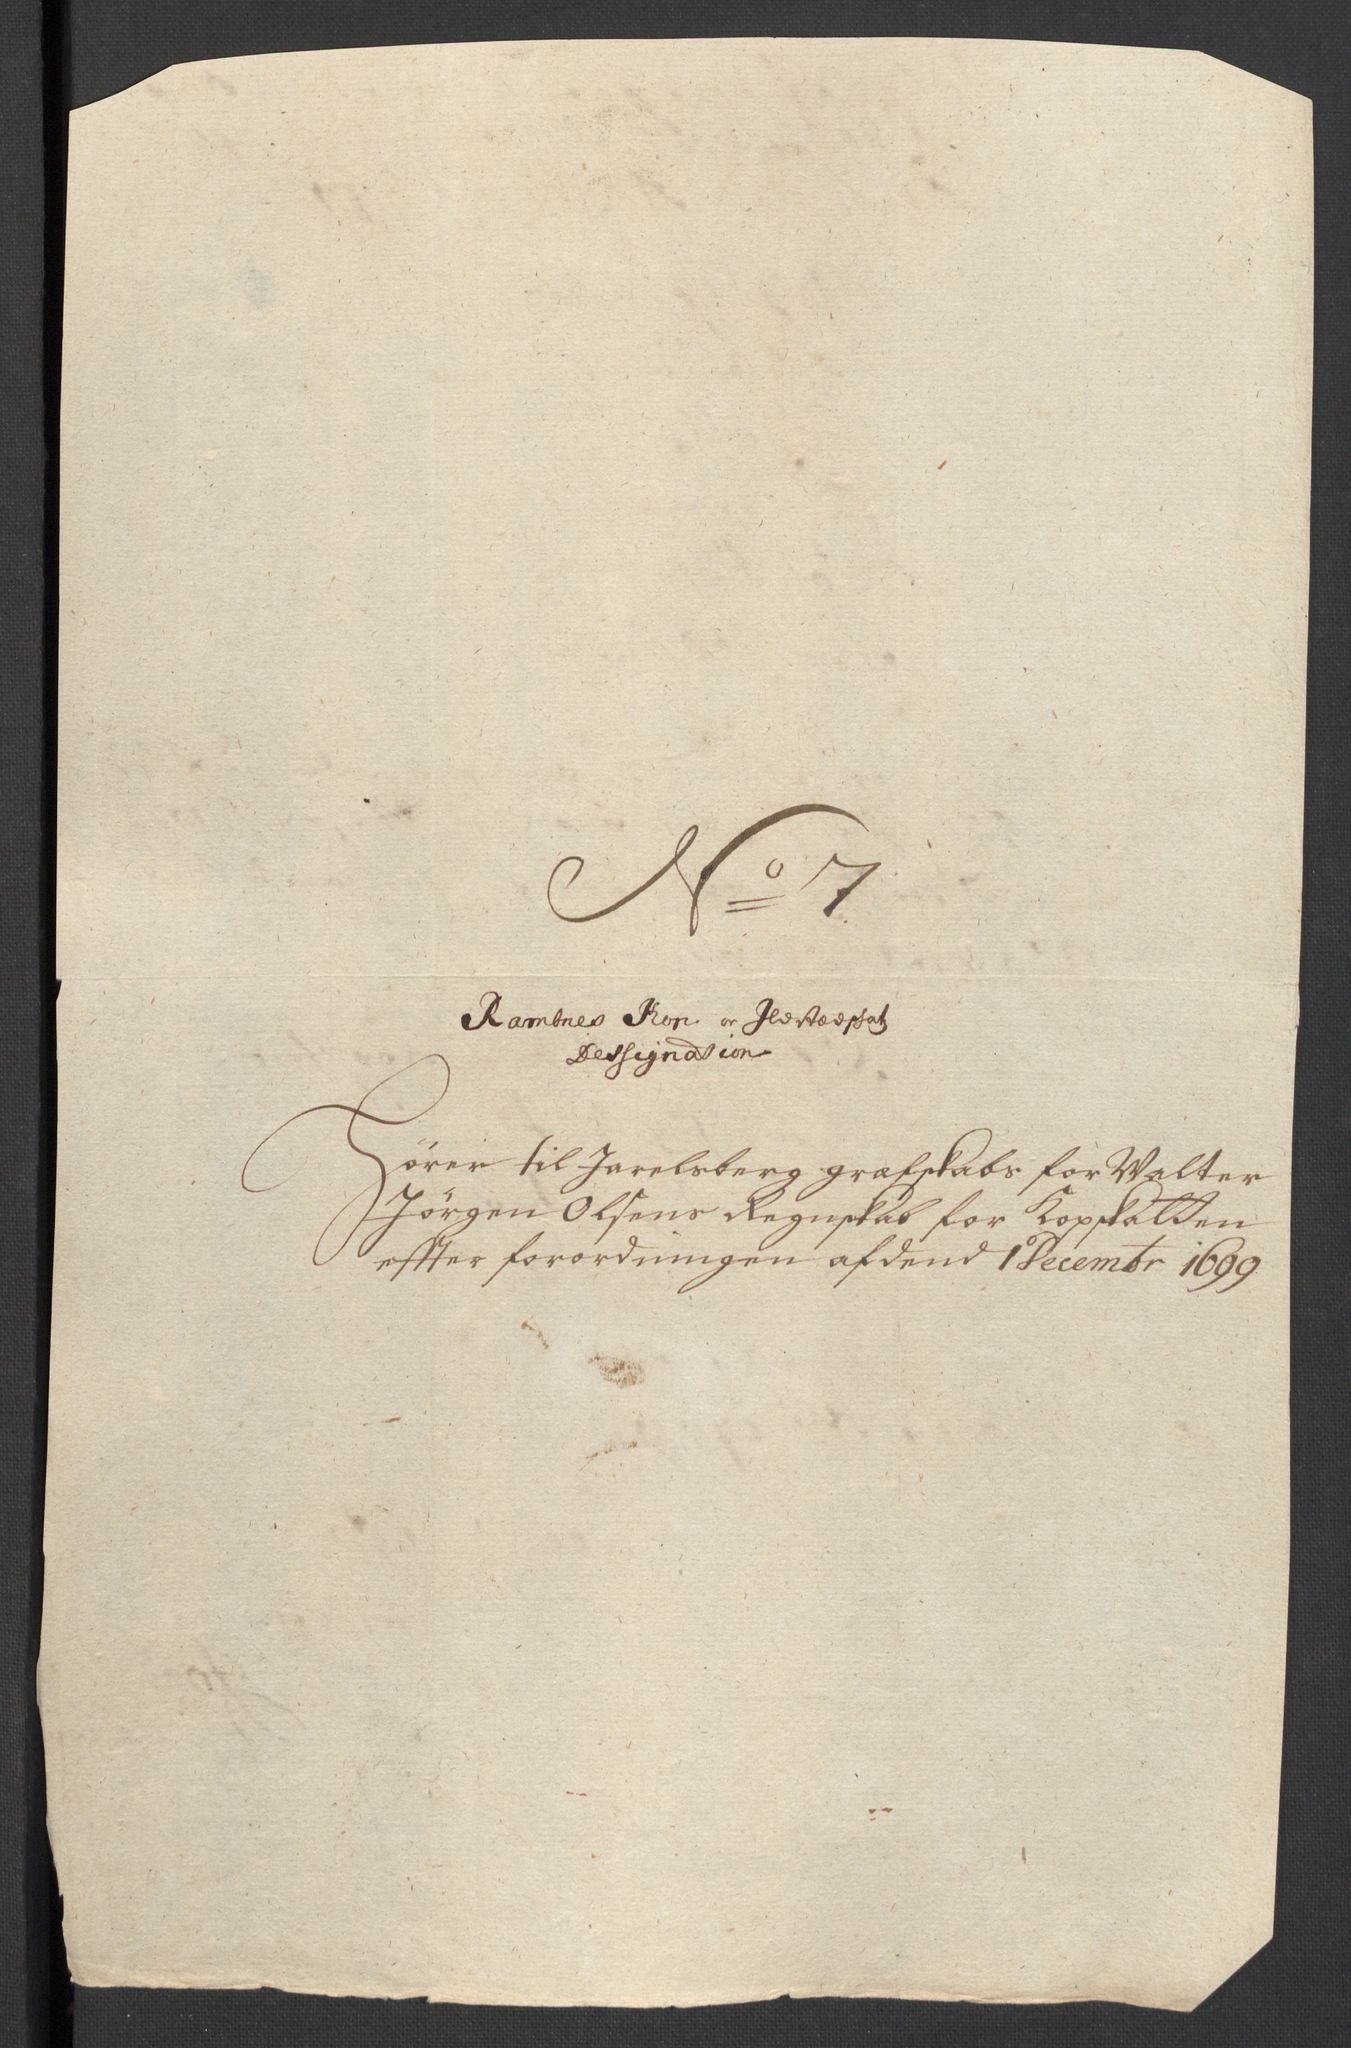 No 7
Rambnes Kop or Ildstædsskat
Dessignation
Hörer til Jarelsberg grafskabs forWalter
Jörgen Olsens Regnskab for Kopskatten
effter forordningen af dend 1 Decembr 1699